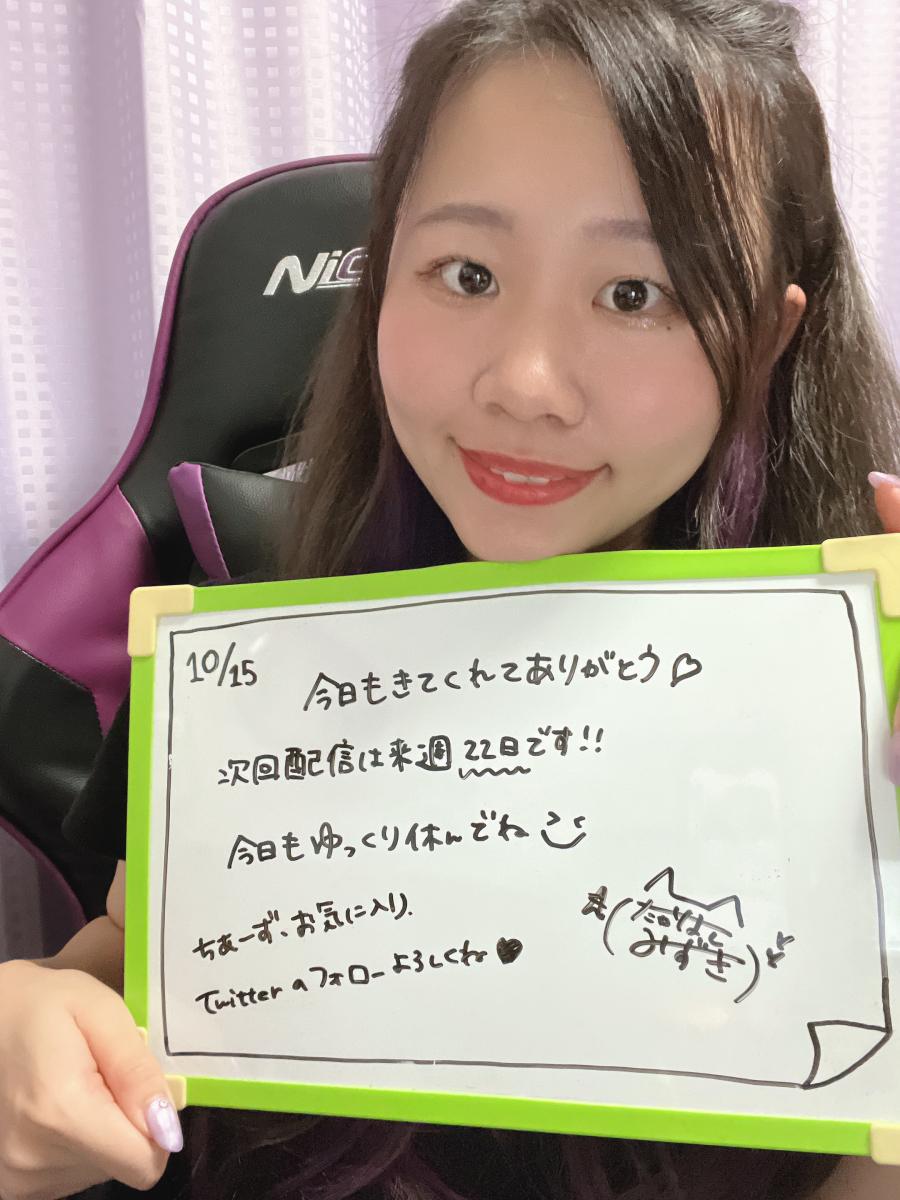 10/15
今日もきてくれてありがとう♡
次回配信は来週22日です!!
今日もゆっくり休んでね
ちあーず、お気に入り、
Twitterのフォローよろしくね♥
みずき